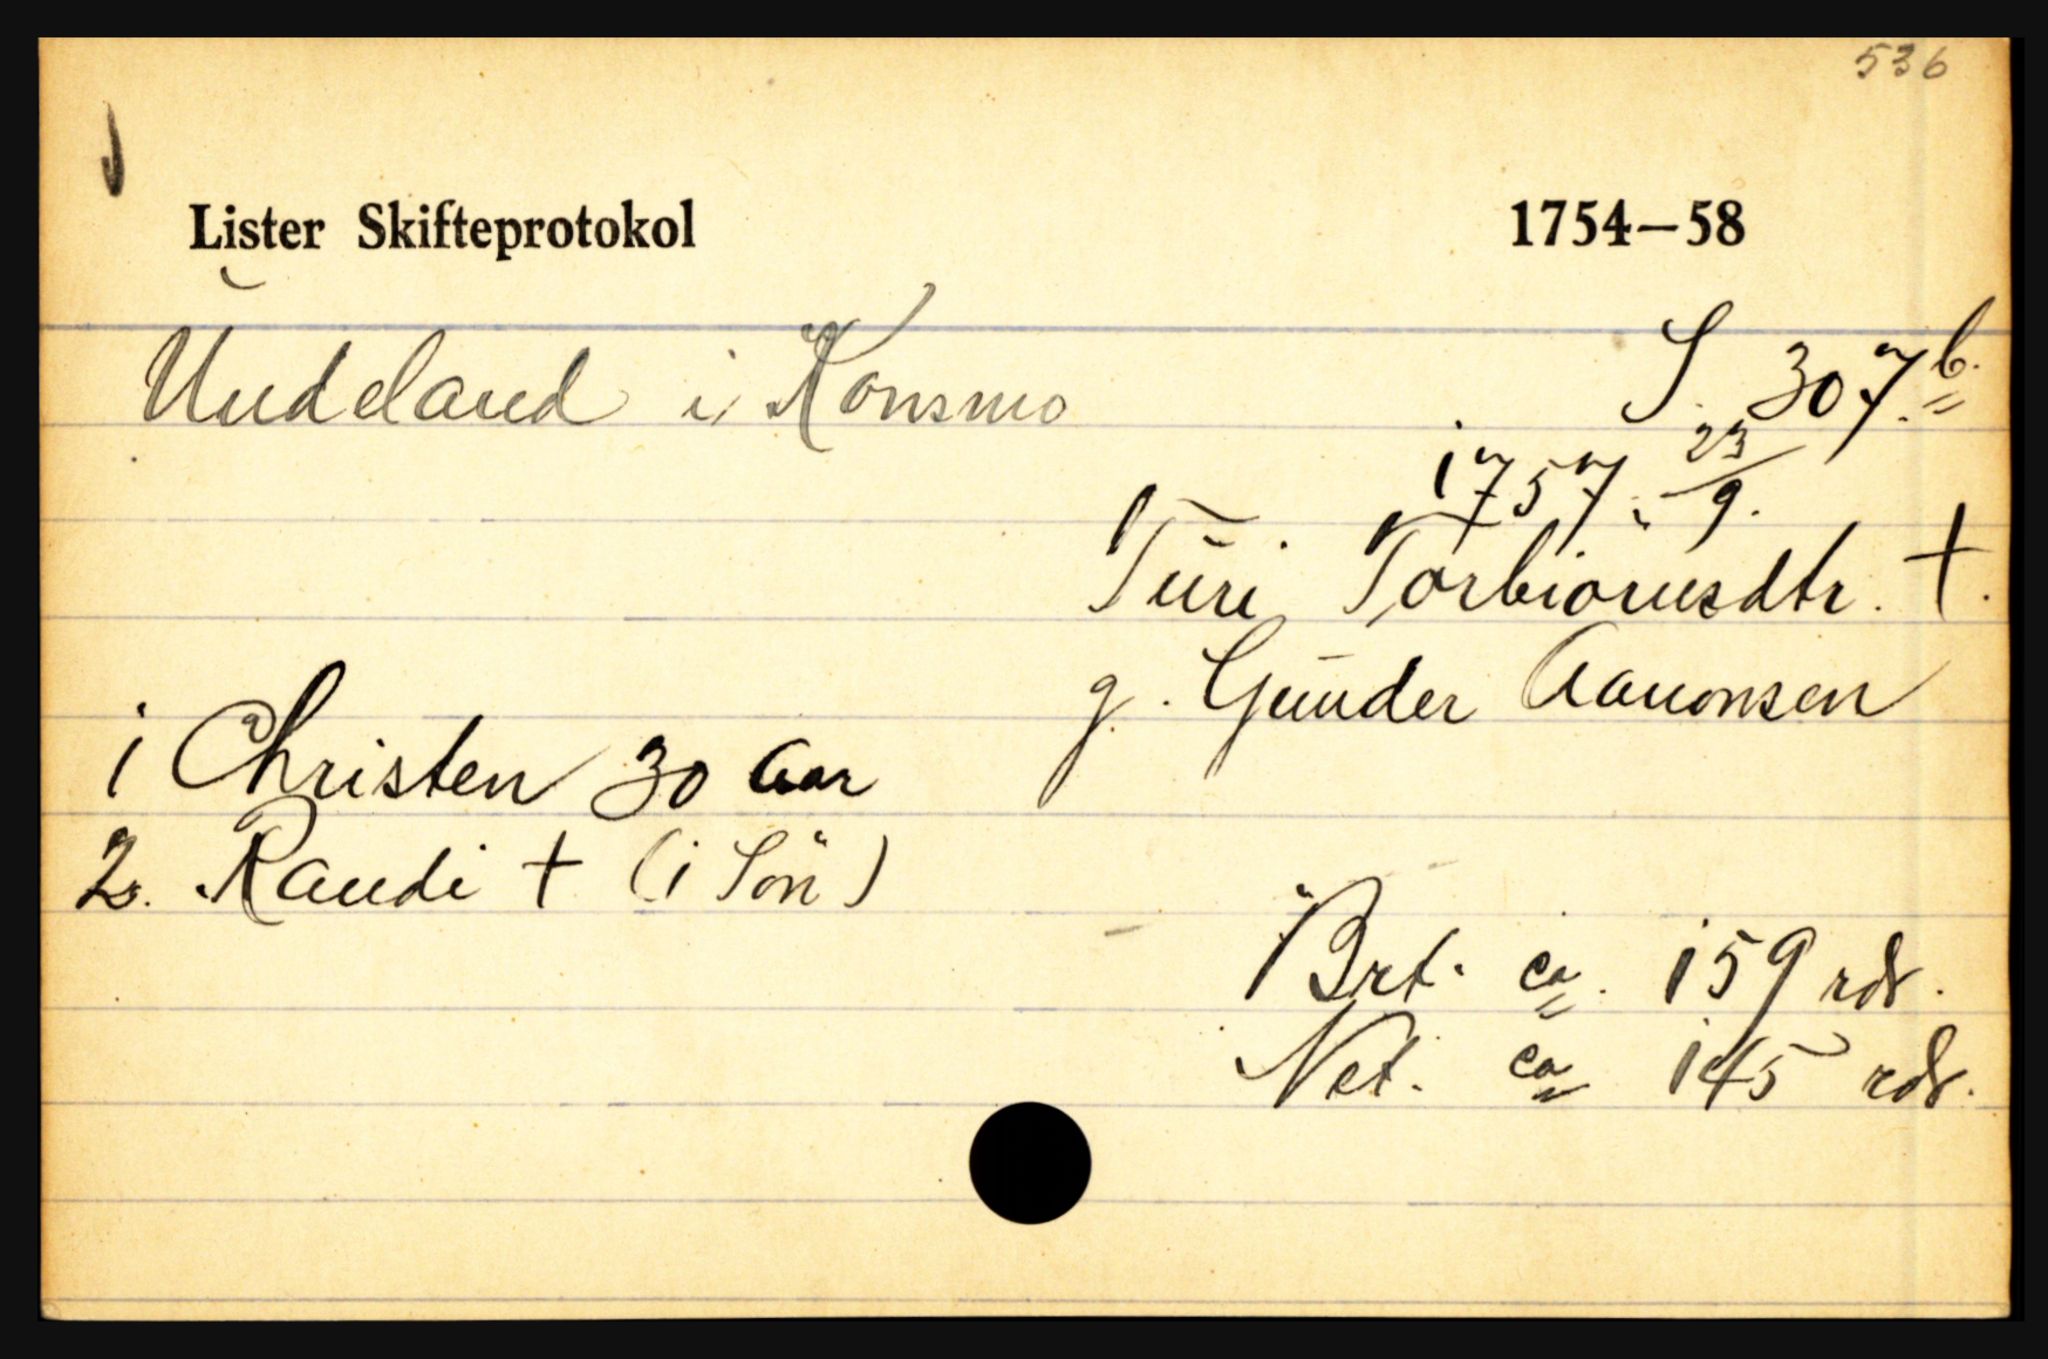 536
Lister Skifteprotokol 1754—58
Uddeland i Konsmo S. 307 b.
1757 23/9.
Turi Torbiornsdtr. †.
g. Gunder Aanonsen
1 Christen 30 aar
2. Randi † (1 Sön)
Brt. ca. 159 rdr.
Net. ca 145 rdr.